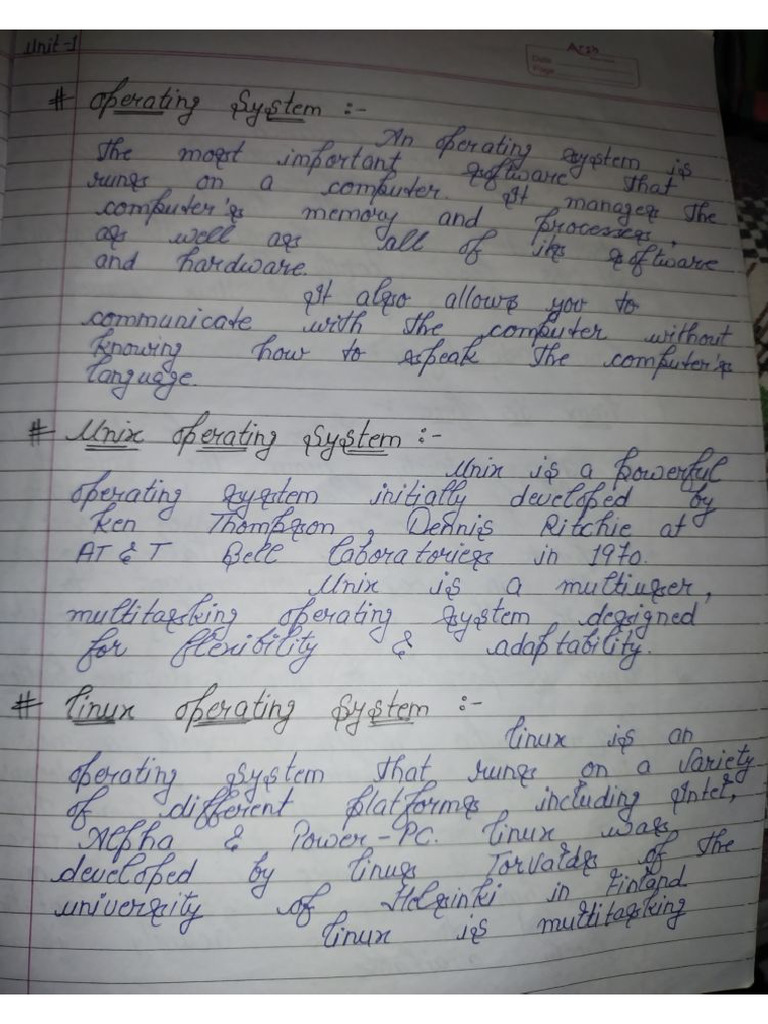 Unit-1
Date
Page
# Operating System :-
An operating system is
the most important software that
runs on a computer. It manages the
computer's memory and processes,
as well as all of its software
and hardware.
It also allows you to
communicate with the computer without
knowing how to speak the computer's
language.
# Unix operating System :-
Unix is a powerful
operating system initially developed by
Ken Thompson, Dennis Ritchie at
AT & T Bell laboratories in 1970.
Unix is a multiuser,
multitasking operating system designed
for flexibility & adaptability.
# Linux operating System :-
Linux is an
operating system that runs on a variety
of different platforms including Intel,
Alpha & Power-PC. Linux was
developed by Linus Torvalds of the
university of Helsinki in Finland
Linux is multitasking